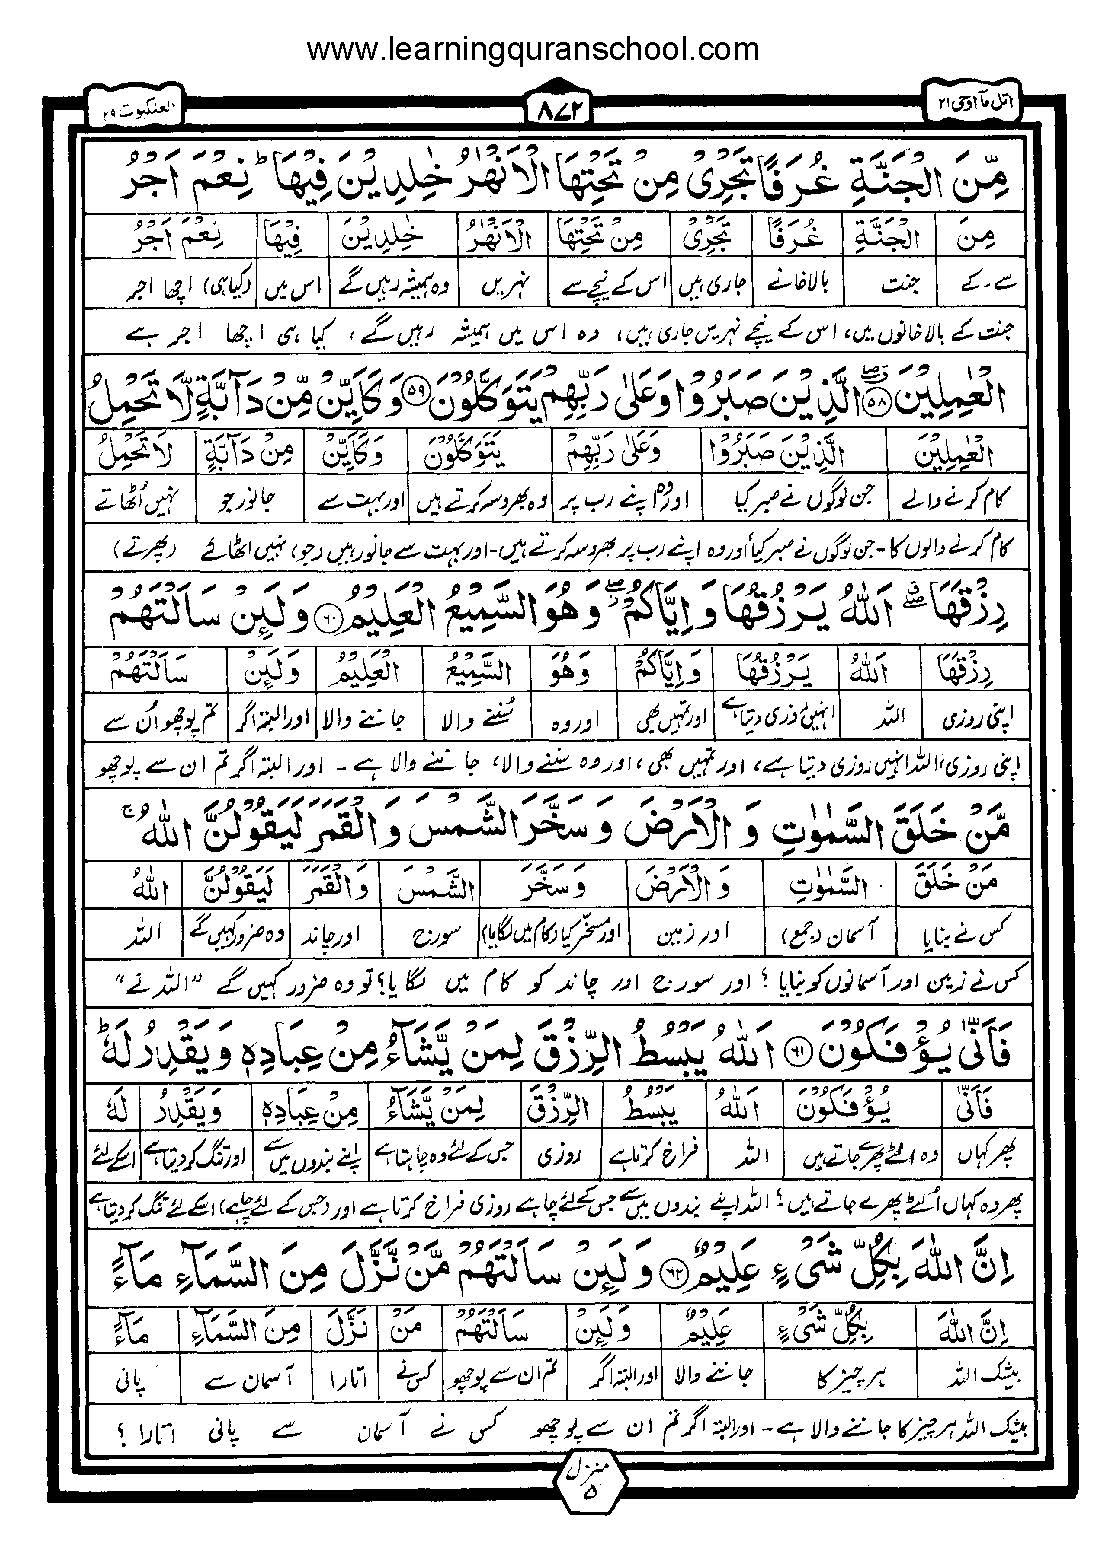 www.learningquranschool.com
اتل مآ اوحی ۲۱ ۸۷۲ العنکبوت ۲۹
مِّنَ الْجَنَّةِ غُرَفًا تَجْرِیْ مِنْ تَحْتِهَا الْاَنْهٰرُ خٰلِدِیْنَ فِیْهَا ؕ نِعْمَ اَجْرُ
مِنَ الْجَنَّةِ غُرَفًا تَجْرِیْ مِنْ تَحْتِهَا الْاَنْهٰرُ خٰلِدِیْنَ فِیْهَا نِعْمَ اَجْرُ
سے ۔ کے جنت بالاخانے جاری ہیں اس کے نیچے سے نہریں وہ ہمیشہ رہیں گے اس میں (کیا ہی) اچھا اجر
جنت کے بالاخانوں میں، اس کے نیچے نہریں جاری ہیں، وہ اس میں ہمیشہ رہیں گے، کیا ہی اچھا اجر ہے
الْعٰمِلِیْنَ ﴿۵۸﴾ الَّذِیْنَ صَبَرُوْا وَعَلٰی رَبِّهِمْ یَتَوَكَّلُوْنَ ﴿۵۹﴾ وَكَاَیِّنْ مِّنْ دَآبَّةٍ لَّا تَحْمِلُ
الْعٰمِلِیْنَ الَّذِیْنَ صَبَرُوْا وَعَلٰی رَبِّهِمْ یَتَوَكَّلُوْنَ وَكَاَیِّنْ مِنْ دَآبَّةٍ لَا تَحْمِلُ
کام کرنے والے جن لوگوں نے صبر کیا اور وہ اپنے رب پر وہ بھروسہ کرتے ہیں اور بہت سے جانور جو نہیں اٹھاتے
کام کرنے والوں کا ۔ جن لوگوں نے صبر کیا اور وہ اپنے رب پر بھروسہ کرتے ہیں ۔ اور بہت سے جانور ہیں (جو) نہیں اٹھائے (پھرتے)
رِزْقَهَا ۖ اَللّٰهُ یَرْزُقُهَا وَاِیَّاكُمْ ۖ وَهُوَ السَّمِیْعُ الْعَلِیْمُ ﴿۶۰﴾ وَلَىِٕنْ سَاَلْتَهُمْ
رِزْقَهَا اَللّٰهُ یَرْزُقُهَا وَاِیَّاكُمْ وَهُوَ السَّمِیْعُ الْعَلِیْمُ وَلَىِٕنْ سَاَلْتَهُمْ
اپنی روزی اللہ انہیں روزی دیتا ہے اور تمہیں بھی اور وہ سُننے والا جاننے والا اور البتہ اگر تم پوچھو اُن سے
اپنی روزی، اللہ انہیں روزی دیتا ہے، اور تمہیں بھی، اور وہ سننے والا، جاننے والا ہے ۔ اور البتہ اگر تم ان سے پوچھو
مَّنْ خَلَقَ السَّمٰوٰتِ وَالْاَرْضَ وَسَخَّرَ الشَّمْسَ وَالْقَمَرَ لَیَقُوْلُنَّ اللّٰهُ ۚ
مَنْ خَلَقَ السَّمٰوٰتِ وَالْاَرْضَ وَسَخَّرَ الشَّمْسَ وَالْقَمَرَ لَیَقُوْلُنَّ اللّٰهُ
کس نے بنایا آسمان (جمع) اور زمین اور مسخر کیا (کام میں لگایا) سورج اور چاند وہ ضرور کہیں گے اللہ
کس نے زمین اور آسمانوں کو بنایا ؟ اور سورج اور چاند کو کام میں لگایا؟ تو وہ ضرور کہیں گے "اللہ نے"
فَاَنّٰی یُؤْفَكُوْنَ ﴿۶۱﴾ اَللّٰهُ یَبْسُطُ الرِّزْقَ لِمَنْ یَّشَآءُ مِنْ عِبَادِهٖ وَیَقْدِرُ لَهٗ ؕ
فَاَنّٰی یُؤْفَكُوْنَ اَللّٰهُ یَبْسُطُ الرِّزْقَ لِمَنْ یَّشَآءُ مِنْ عِبَادِهٖ وَیَقْدِرُ لَهٗ
پھر کہاں وہ الٹے پھرے جاتے ہیں اللہ فراخ کرتا ہے روزی جس کے لئے وہ چاہتا ہے اپنے بندوں میں سے اور تنگ کر دیتا ہے اسکے لئے
پھر وہ کہاں اُلٹے پھرے جاتے ہیں؟ اللہ اپنے بندوں میں سے جس کے لئے چاہے روزی فراخ کرتا ہے اور (جس کے لئے چاہے) اسکے لئے تنگ کر دیتا ہے
اِنَّ اللّٰهَ بِكُلِّ شَیْءٍ عَلِیْمٌ ﴿۶۲﴾ وَلَىِٕنْ سَاَلْتَهُمْ مَّنْ نَّزَّلَ مِنَ السَّمَآءِ مَآءً
اِنَّ اللّٰهَ بِكُلِّ شَیْءٍ عَلِیْمٌ وَلَىِٕنْ سَاَلْتَهُمْ مَنْ نَزَّلَ مِنَ السَّمَآءِ مَآءً
بیشک اللہ ہر چیز کا جاننے والا اور البتہ اگر تم ان سے پوچھو کس نے اتارا آسمان سے پانی
بیشک اللہ ہر چیز کا جاننے والا ہے ۔ اور البتہ اگر تم ان سے پوچھو کس نے آسمان سے پانی اتارا ؟
منزل ۵